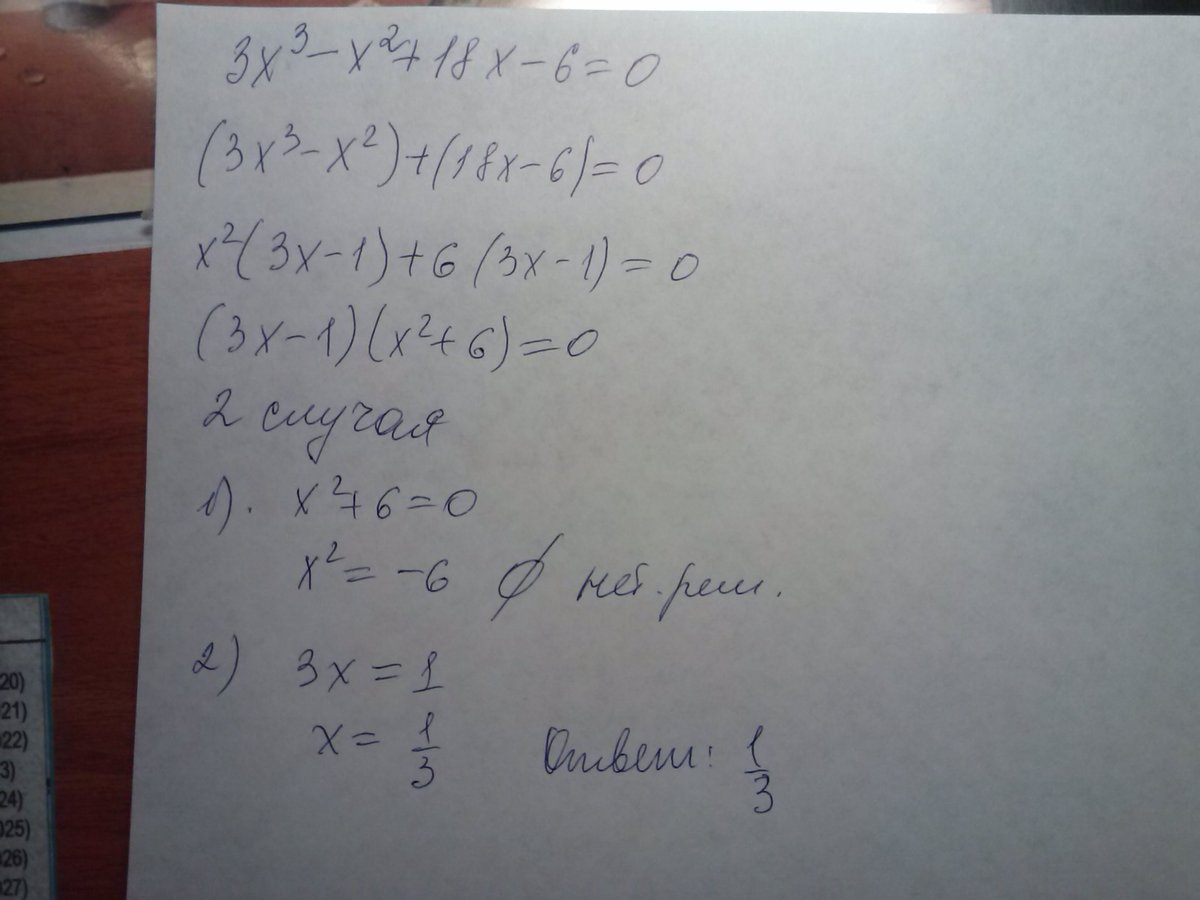 3x³-x²+18x-6=0
(3x³-x²)+(18x-6)=0
x²(3x-1)+6(3x-1)=0
(3x-1)(x²+6)=0
2 случая
1). x²+6=0
x²=-6 ∅ нет. реш.
2) 3x=1
x=1/3 Ответ: 1/3
20)
021)
022)
3)
24)
025)
026)
027)